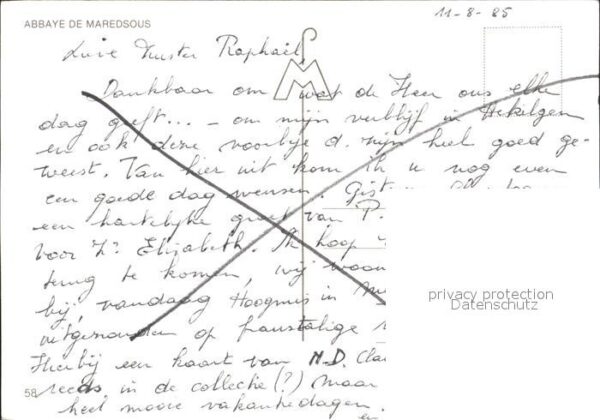 ABBAYE DE MAREDSOUS
11-8-85
Zuster Raphaël,
Dankbaar om wat de Heer ons elke
dag geeft... - om mijn verblijf in
en ook deze voorbije d. zijn heel goed ge-
weest. Van hier uit kom ik u nog even
een goede dag wensen.
een hartelijke groet van P.
voor Zr Elisabeth. Ik hoop
terug te komen, wij
bij, vandaag Hoogmis in
uitgezonden op franstalige
Hierbij een kaart van N.D.
reeds in de collectie (?) maar
heel mooie vakantiedagen.
en
privacy protection
Datenschutz
58